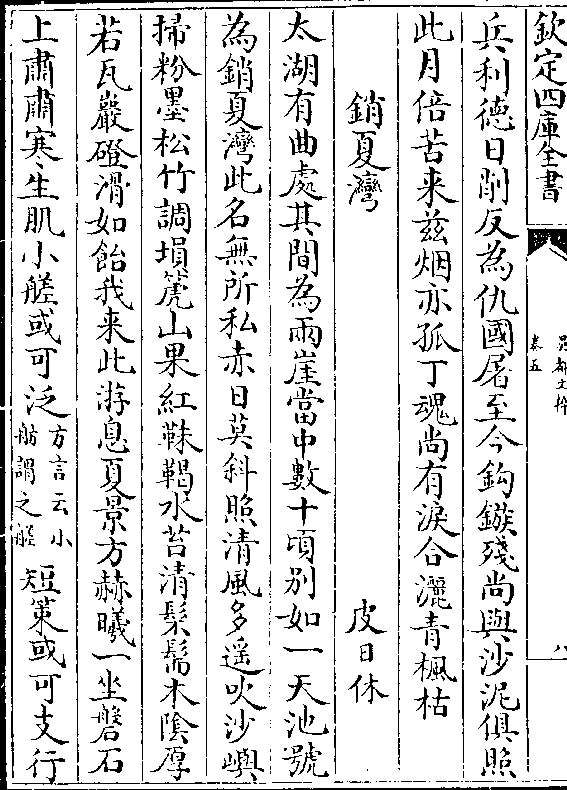 欽定四庫全書
卷五
八
兵利德日削反為仇國屠至今鈎鏃殘尚與沙泥俱照
此月倍苦来兹烟亦孤丁魂尚有淚合灑青楓枯
銷夏灣
皮日休
太湖有曲處其間為兩崖當中數十頃别如一天池號
為銷夏灣此名無所私赤日莫斜照清風多遥吹沙嶼
掃粉墨松竹調塤篪山果紅靺鞨水苔清髮鬌木陰厚
若瓦巖磴滑如飴我来此游息夏景方赫曦一坐磐石
上肅肅寒生肌小艖或可泛方言云小舫謂之艖短策或可支行